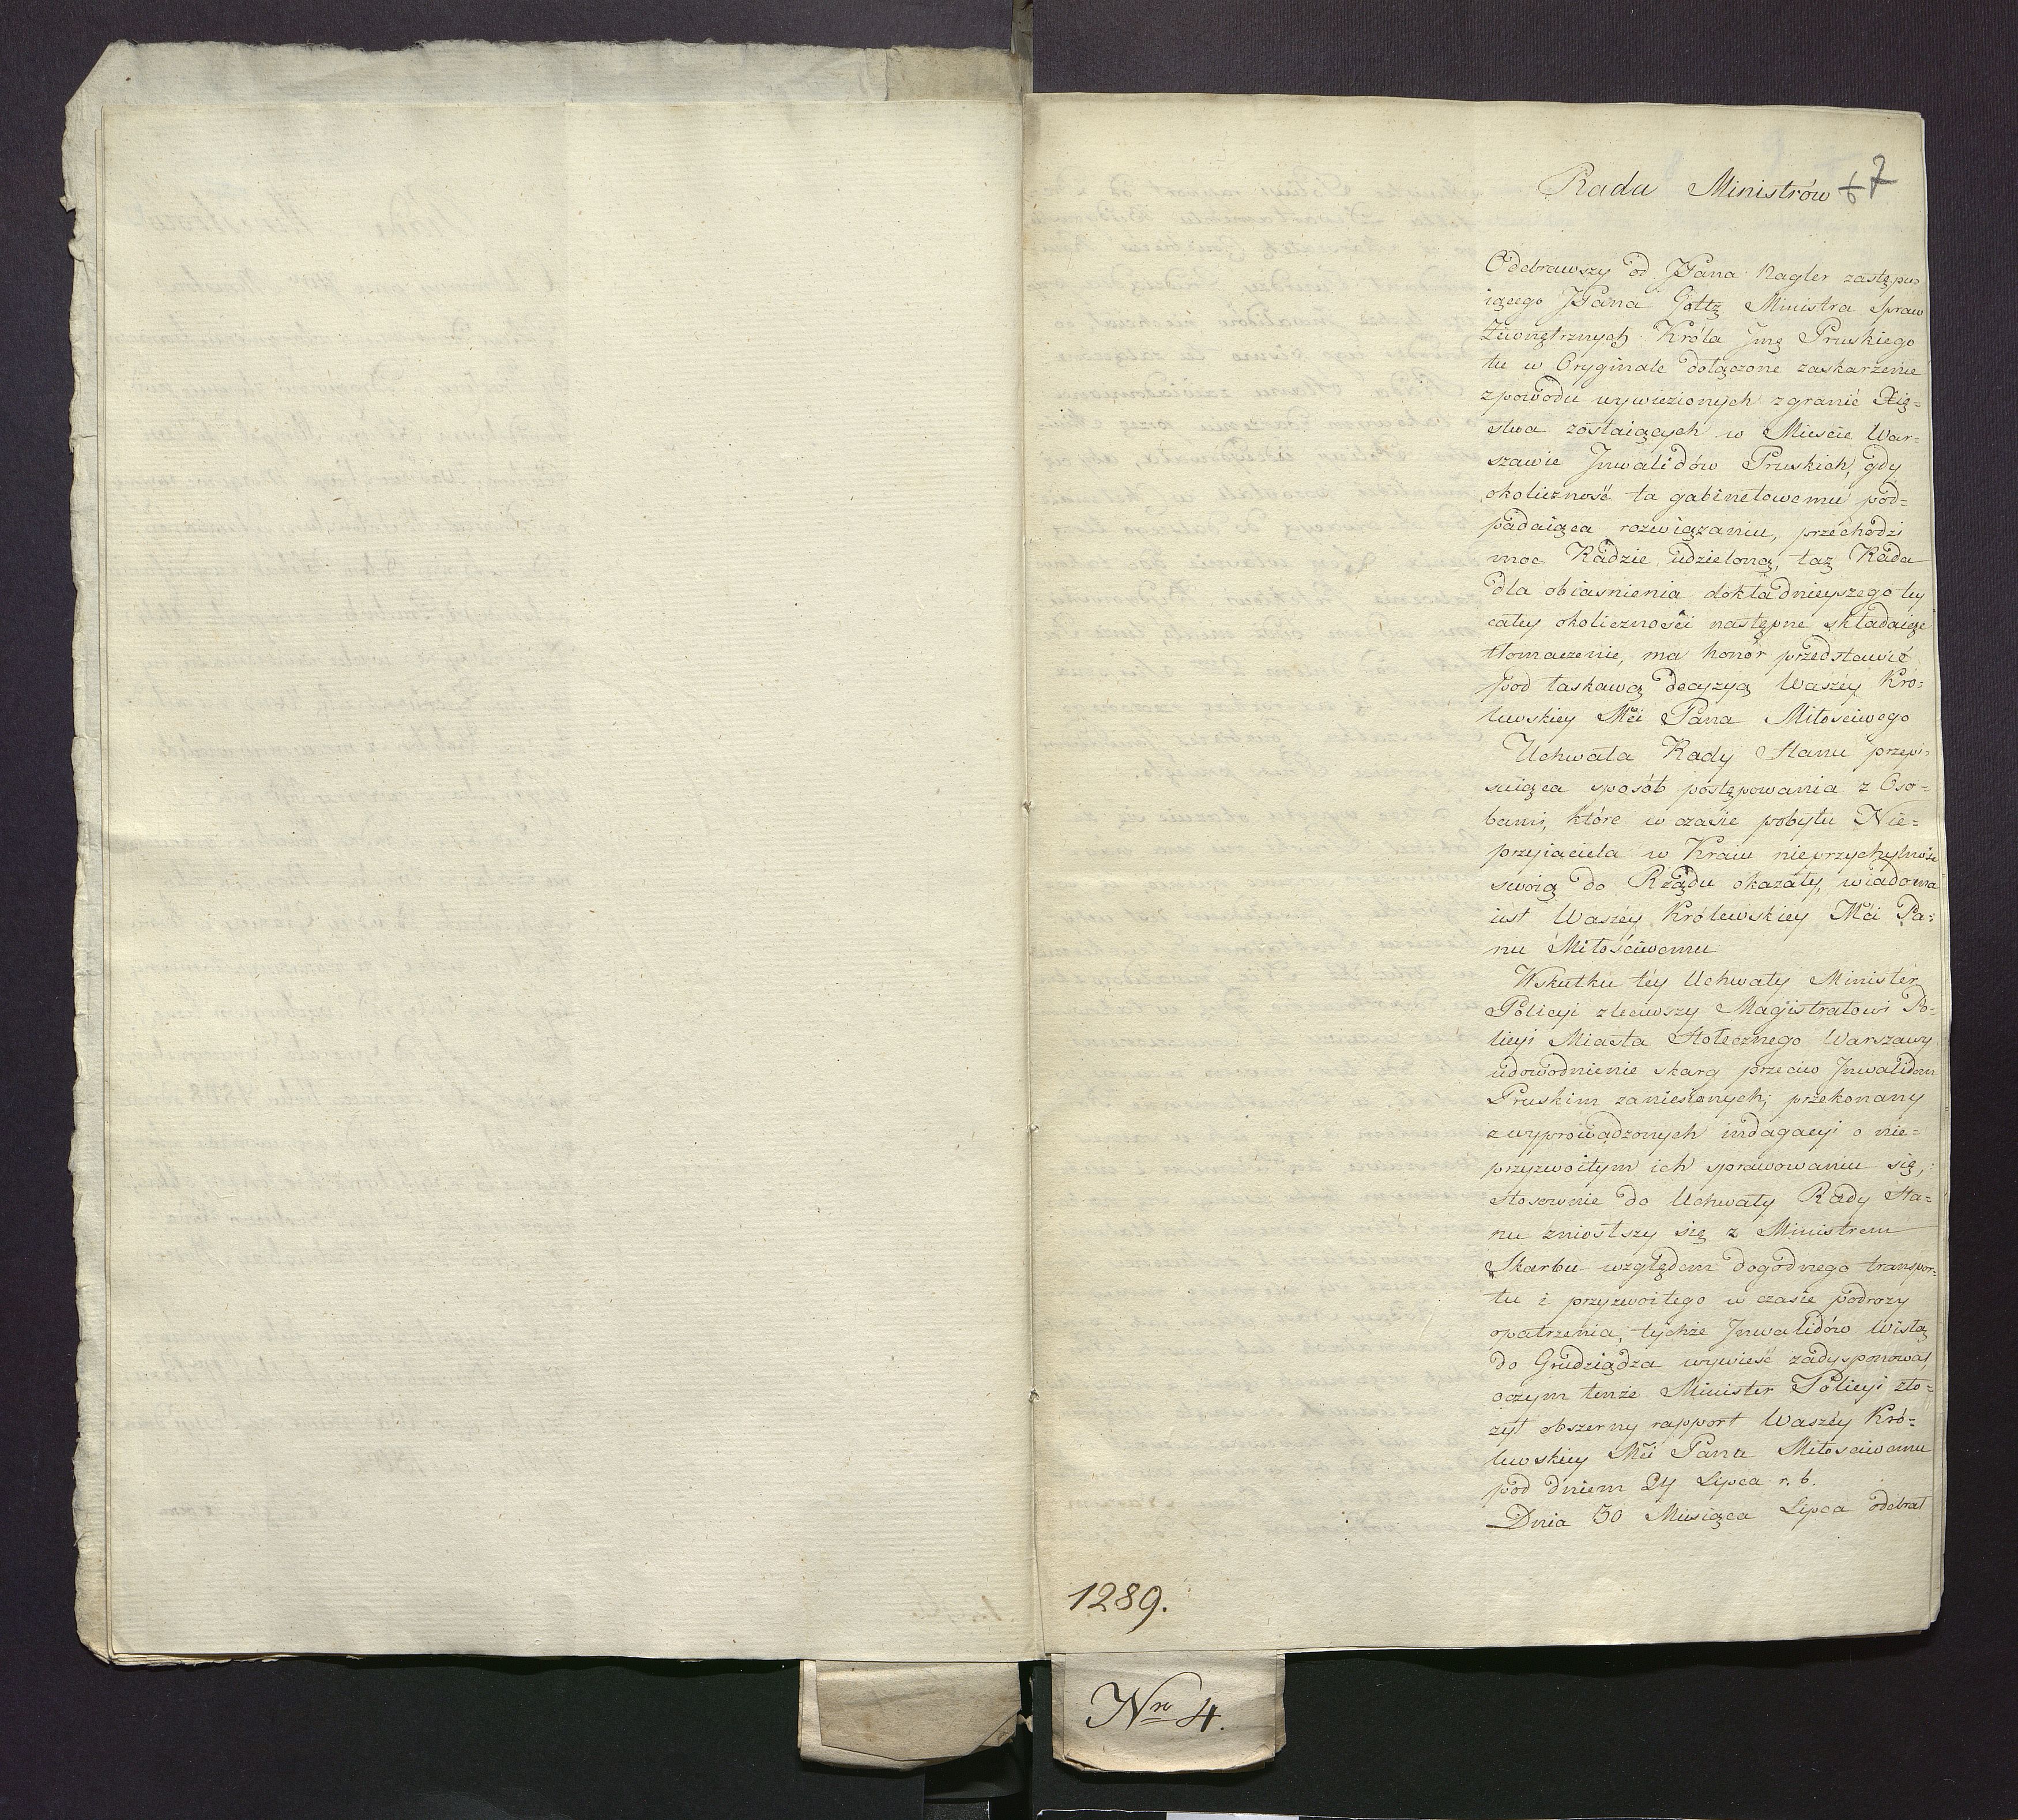 Rada Ministrów 6 7
Odebrawszy od JPana Nagler zastępu=
iącego JPana Goltz Ministra Spraw
Zewnętrznych Króla Jmę Pruskiego
tu w Oryginale dołączone zaskarżenie
z powodu wywiezionych z granić Xię=
stwa zostaiących w Mieście War=
szawie Inwalidów Pruskich, gdy
okoliczność ta gabinetowemu pod=
padaiąca rozwiązaniu, przechodzi
moc Radzie udzieloną, taż Rada
dla obiasnienia dokładnieyszego tey
całey okoliczności następne składaiąc
tłomaczenie, ma honor przedstawić
pod łaskawą decyzyą Waszéy Kró=
lewskiey Mći Pana Miłościwego
Uchwała Rady Stanu przepi=
suiąca sposób postępowania z Oso=
bami, które w czasie pobytu Nie=
przyiaciela w Kraiu nieprzychylność
swoią do Rządu okazały, wiadoma
iest Waszéy Królewskiey Mći Pa=
nu Miłościwemu
Wskutku téy Uchwały Minister
Policyi zleciwszy Magistratowi Po=
licyi Miasta Stołecznego Warszawy
udowodnienie skarg przeciw Inwalidom
Pruskim zaniesionych; przekonany
z wyprowadzonych indagacyi o nie=
przyzwoitym ich sprawowaniu się,
stosownie do Uchwały Rady Sta=
nu zniosłszy się z Ministrem
Skarbu względem dogodnego transpor=
tu i przyzwoitego w czasie podrozy
opatrzenia, tychże Inwalidów Wisłą
do Grudziądza wywieść zadysponował,
oczym tenże Minister Policyi zło=
żył obszerny rapport Waszéy Kró=
lewskiey Mći Panu Miłosciwemu
pod dniem 24 Lipca r. b.
Dnia 30 Miesiąca Lipca odebrał
1289.
Nro 4.